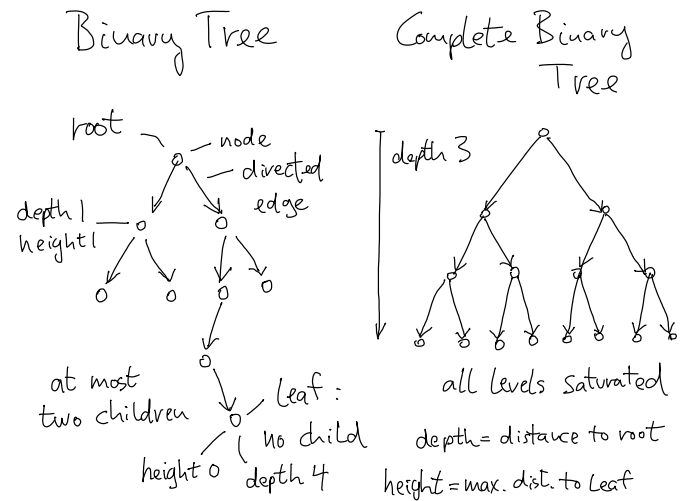 Binary Tree
root
node
directed
edge
depth 1
height 1
at most
two children
Leaf :
no child
height 0
depth 4
Complete Binary
Tree
depth 3
all Levels saturated
depth = distance to root
height = max. dist. to Leaf